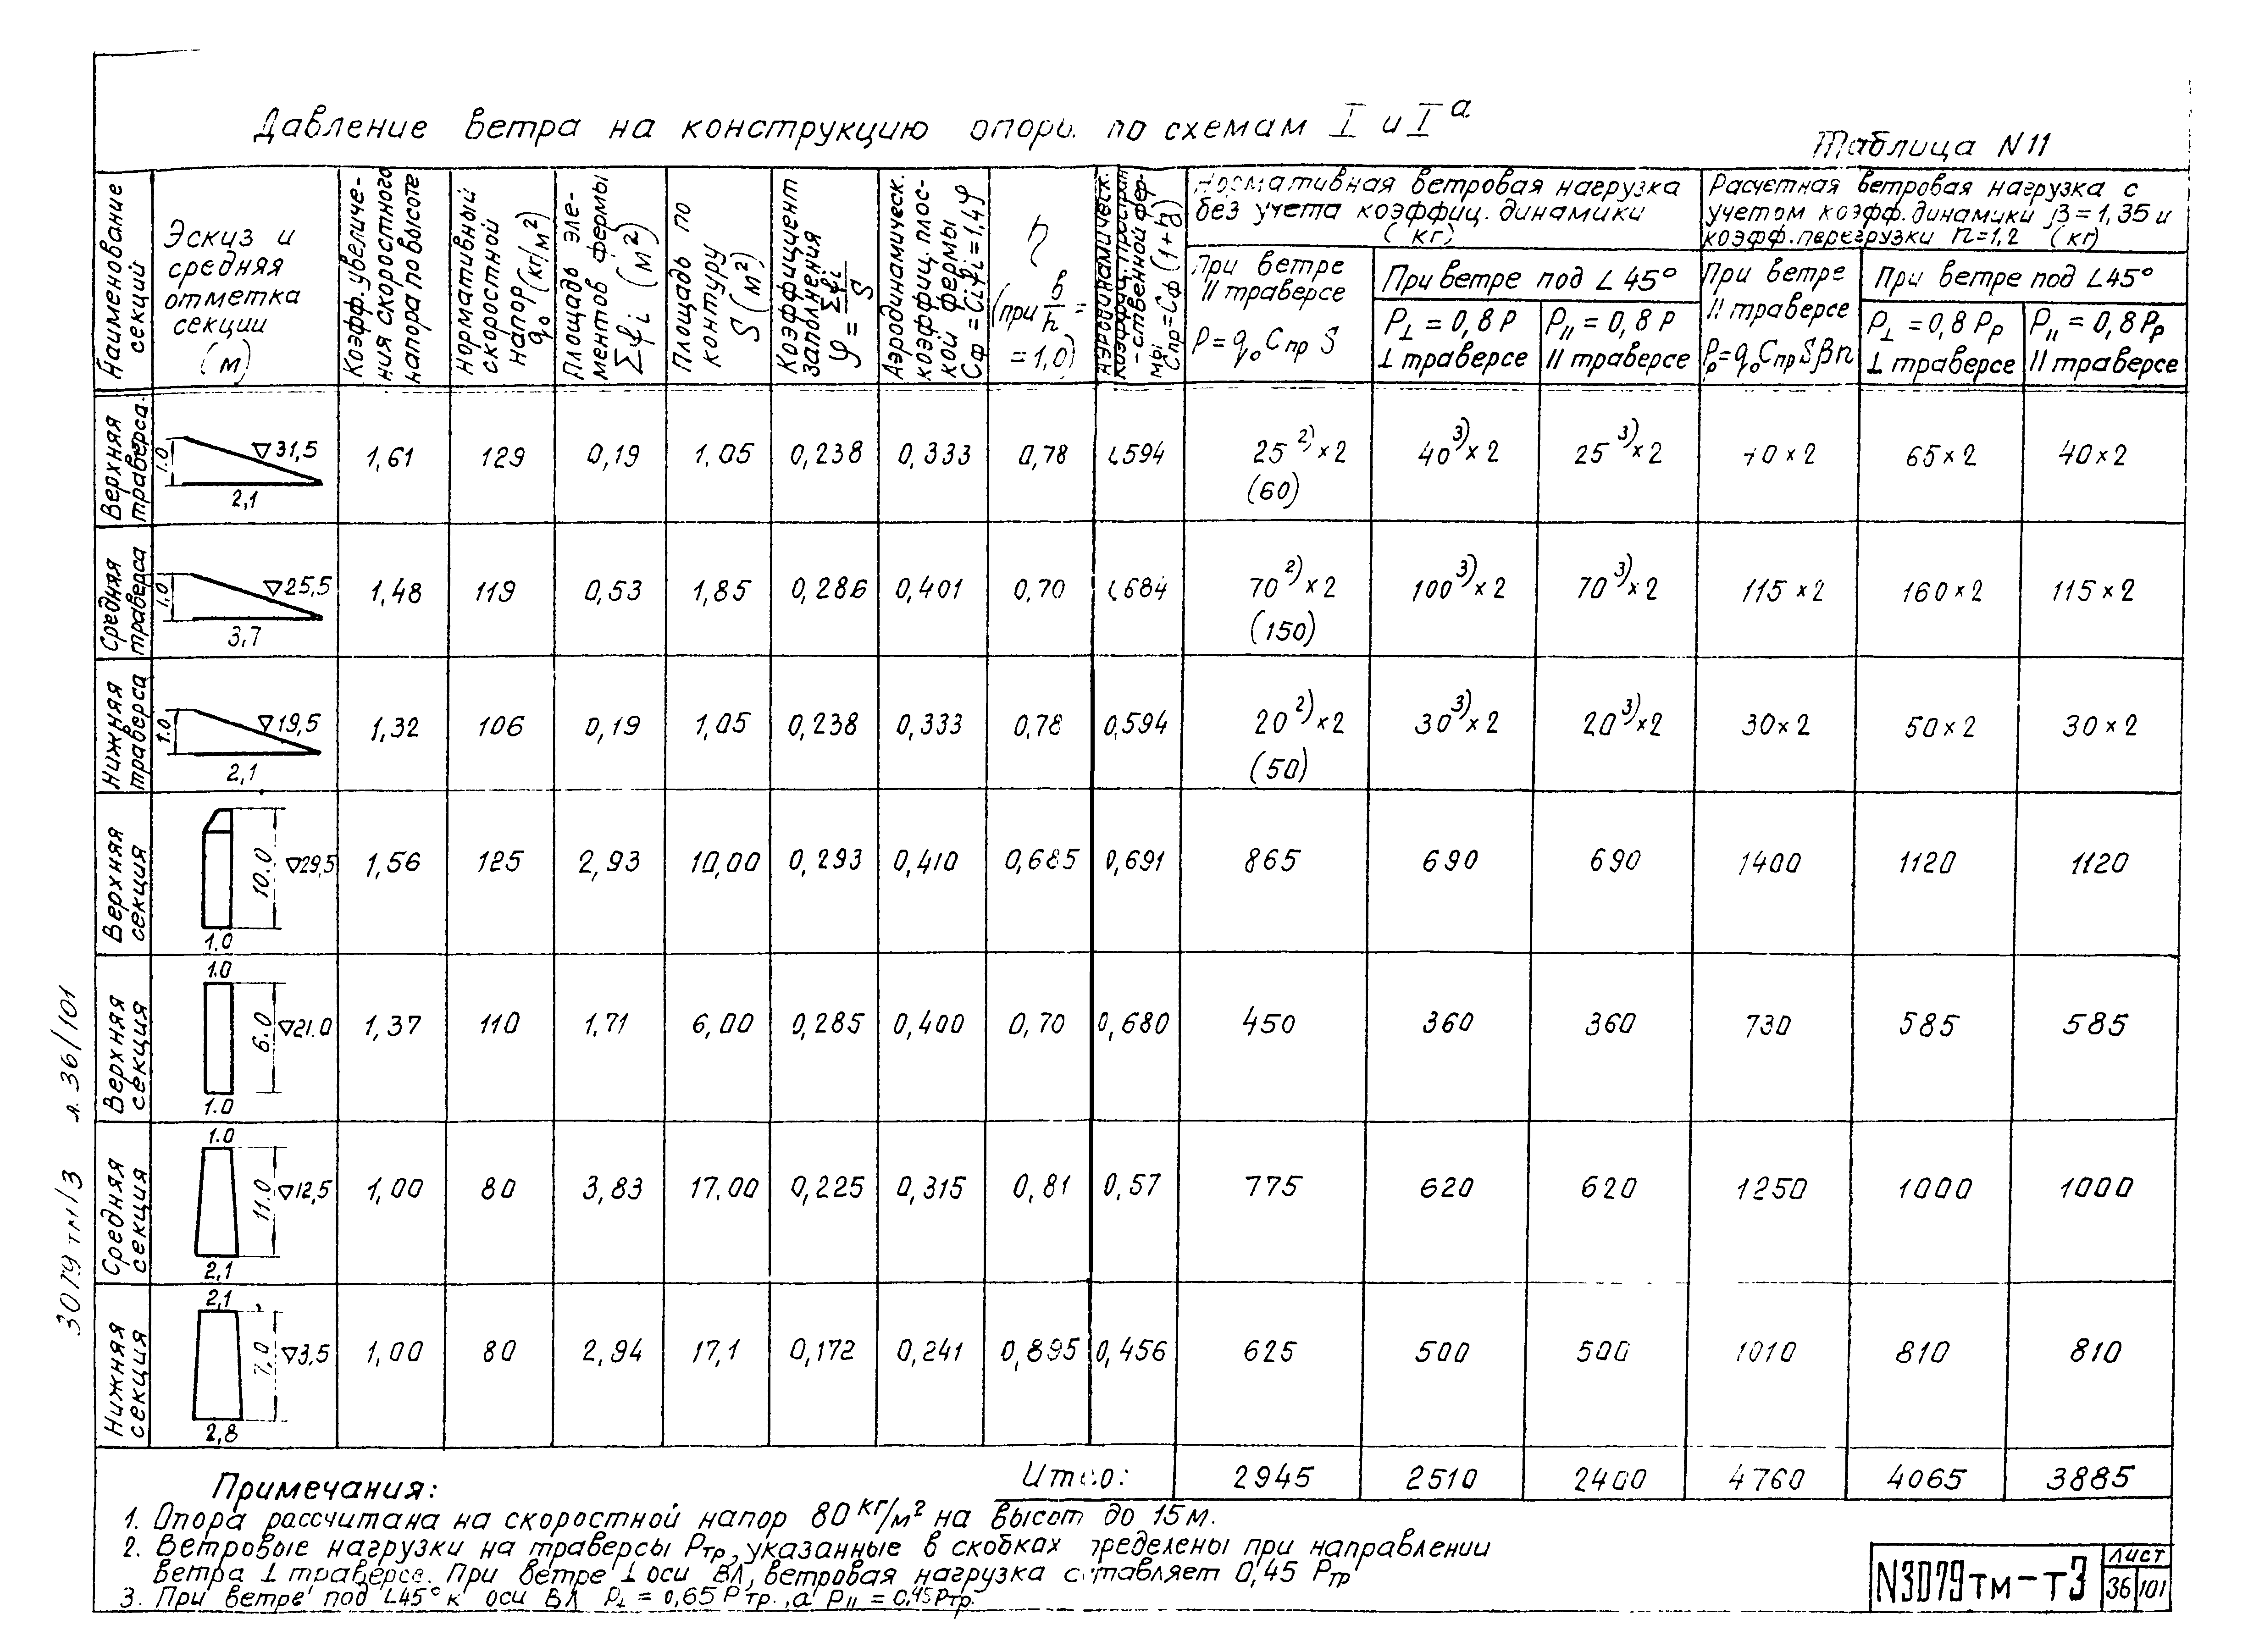 Давление ветра на конструкцию опоры по схемам I и Iа
Таблица N 11
Наименование секций
Эскиз и средняя отметка секции (м)
Коэфф. увеличения скоростного напора по высоте
Нормативный скоростной напор (кг/м²) q₀
Площадь элементов фермы Σfi (м²)
Площадь по контуру S (м²)
Коэффициент заполнения φ = Σfi / S
Аэродинамическ. коэффиц. плоской фермы Cφ = Ci φi = 1,4φ
η (при b/h = = 1,0)
Аэродинамическ. коэффиц. пространственной фермы Cпр = Cφ (1+η)
Нормативная ветровая нагрузка без учета коэффиц. динамики (кг)
При ветре II траверсе P = q₀ Cпр S
При ветре под ∠ 45°
P⊥ = 0,8 P ⊥ траверсе
P II = 0,8 P II траверсе
Расчетная ветровая нагрузка с учетом коэфф. динамики β = 1,35 и коэфф. перегрузки n = 1,2 (кг)
При ветре II траверсе Pр = q₀ Cпр S β n
При ветре под ∠ 45°
P⊥ = 0,8 Pр ⊥ траверсе
P II = 0,8 Pр II траверсе
Верхняя траверса. 1.0 ▽31,5 2,1 1,61 129 0,19 1,05 0,238 0,333 0,78 594 25²⁾×2 (60) 40³⁾×2 25³⁾×2 0×2 65×2 40×2
Средняя траверса 1.0 ▽25,5 3,7 1,48 119 0,53 1,85 0,286 0,401 0,70 684 70²⁾×2 (150) 100³⁾×2 70³⁾×2 115×2 160×2 115×2
Нижняя траверса 1.0 ▽19,5 2,1 1,32 106 0,19 1,05 0,238 0,333 0,78 0,594 20²⁾×2 (50) 30³⁾×2 20³⁾×2 30×2 50×2 30×2
Верхняя секция 10.0 ▽29,5 1.0 1,56 125 2,93 10,00 0,293 0,410 0,685 0,691 865 690 690 1400 1120 1120
Верхняя секция 1.0 6.0 ▽21.0 1.0 1,37 110 1,71 6,00 0,285 0,400 0,70 0,680 450 360 360 730 585 585
Средняя секция 1.0 11.0 ▽12,5 2,1 1,00 80 3,83 17.00 0,225 0,315 0,81 0,57 775 620 620 1250 1000 1000
Нижняя секция 2,1 7,0 ▽3,5 2,8 1,00 80 2,94 17,1 0,172 0,241 0,895 0,456 625 500 500 1010 810 810
Итого: 2945 2510 2400 4760 4065 3885
Примечания:
1. Опора рассчитана на скоростной напор 80 кг/м² на высот до 15 м.
2. Ветровые нагрузки на траверсы Pтр, указанные в скобках определены при направлении
ветра ⊥ траверсе. При ветре ⊥ оси ВЛ, ветровая нагрузка составляет 0,45 Pтр
3. При ветре под ∠45° к оси ВЛ P⊥ = 0,65 Pтр., а P II = 0,45 Pтр.
N3079тм-т3
лист
36 101
3079тм/3 л. 36/101